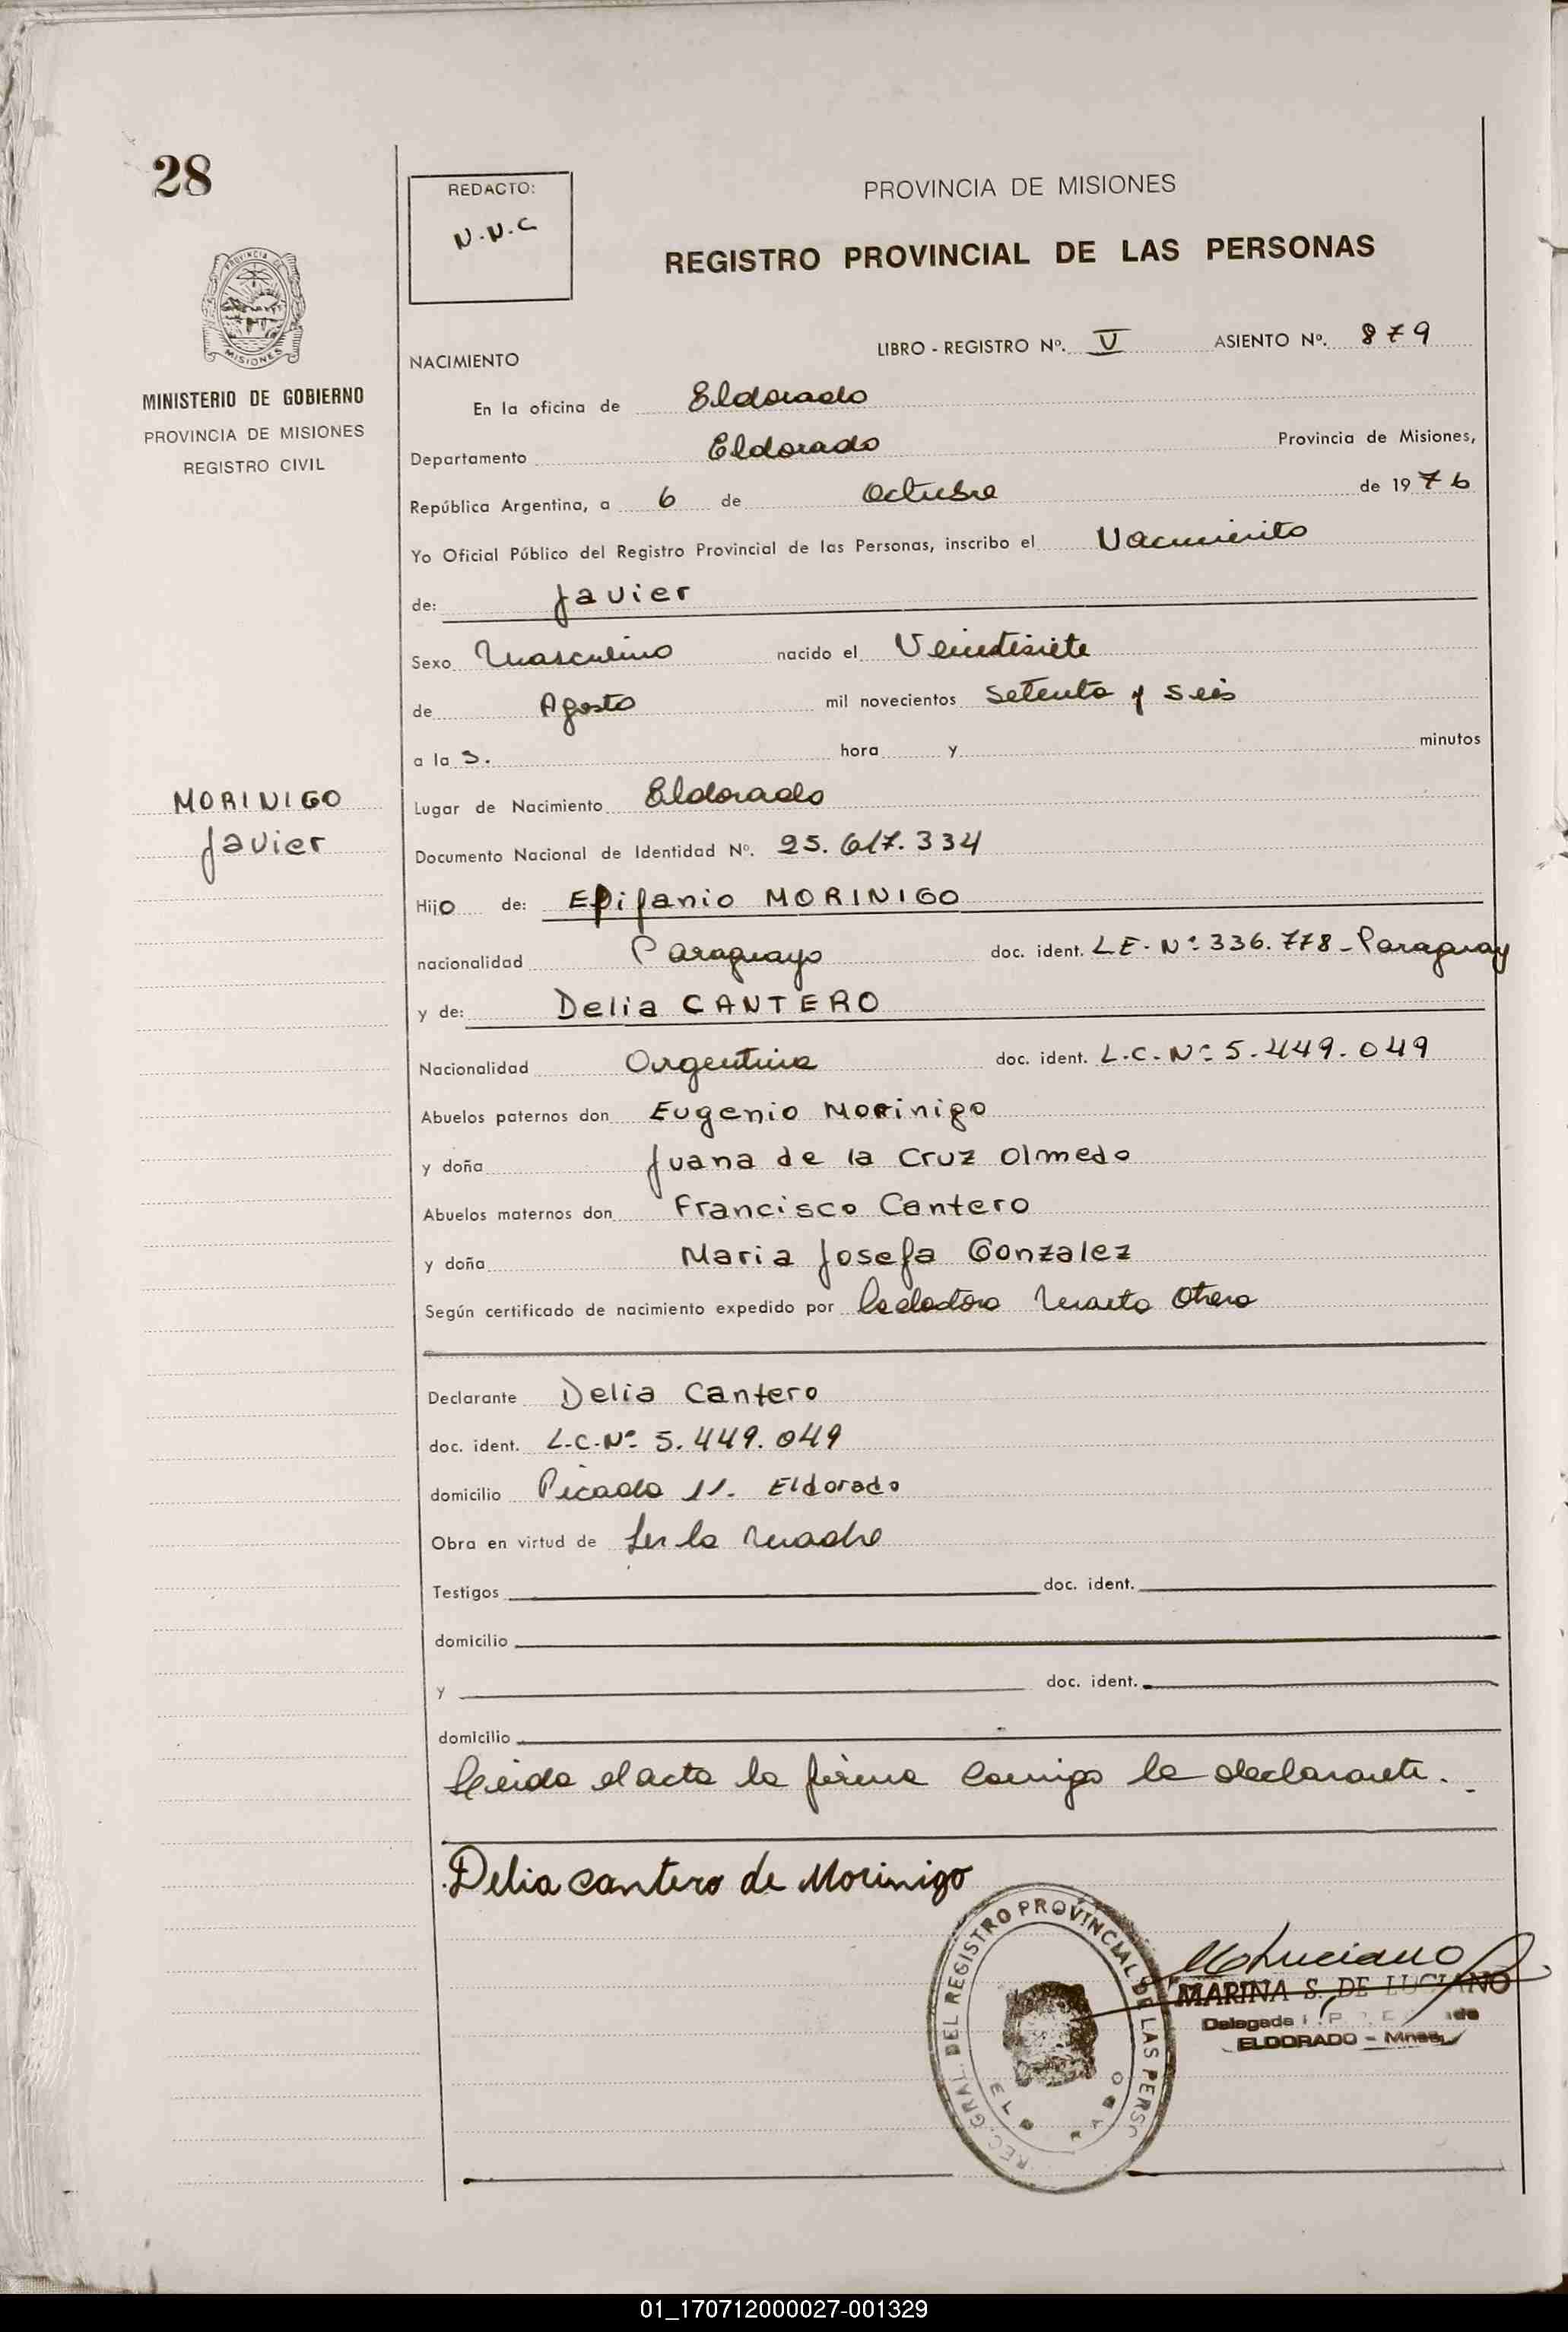 28
REDACTO:
N.N.C
PROVINCIA DE MISIONES
REGISTRO PROVINCIAL DE LAS PERSONAS
PROVINCIA DE
MISIONES
MINISTERIO DE GOBIERNO
PROVINCIA DE MISIONES
REGISTRO CIVIL
NACIMIENTO LIBRO - REGISTRO Nº. V ASIENTO Nº. 879
En la oficina de Eldorado
Departamento Eldorado Provincia de Misiones,
República Argentina, a 6 de Octubre de 1976
Yo Oficial Público del Registro Provincial de las Personas, inscribo el Nacimiento
de: Javier
Sexo Masculino nacido el Veintisiete
de Agosto mil novecientos setenta y seis
a la s. hora y minutos
MORINIGO
Javier
Lugar de Nacimiento Eldorado
Documento Nacional de Identidad Nº. 25.617.334
Hijo de: Epifanio MORINIGO
nacionalidad Paraguayo doc. ident. LE. Nº 336.778 - Paraguay
y de: Delia CANTERO
Nacionalidad Argentina doc. ident. L.C. Nº 5.449.049
Abuelos paternos don Eugenio Morinigo
y doña Juana de la Cruz Olmedo
Abuelos maternos don Francisco Cantero
y doña Maria Josefa Gonzalez
Según certificado de nacimiento expedido por Marta Otero
Declarante Delia Cantero
doc. ident. L.C. Nº 5.449.049
domicilio Picada 11. Eldorado
Obra en virtud de Ser la Madre
Testigos doc. ident.
domicilio
y doc. ident.
domicilio
Leida el acta la firma conmigo la declarante.
Delia Cantero de Morinigo
REC. GRAL. DEL REGISTRO PROVINCIAL DE LAS PERSO
MLuciano
MARINA S. DE LUCIANO
Delegada
ELDORADO - Mnes.
01_170712000027-001329